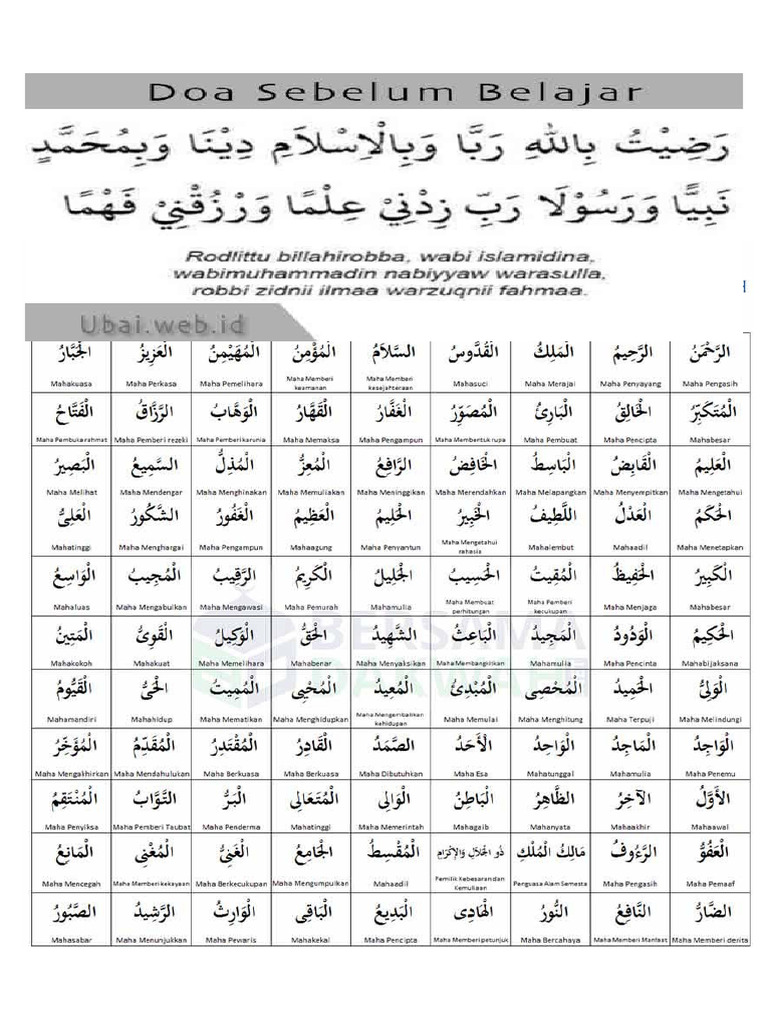 Doa Sebelum Belajar
رَضِيْتُ بِاللهِ رَبَّا وَبِالْاِسْلَامِ دِيْنَا وَبِمُحَمَّدٍ
نَبِيًّا وَرَسُوْلَا رَبِّ زِدْنِيْ عِلْمًا وَرْزُقْنِيْ فَهْمًا
Rodlittu billahirobba, wabi islamidina,
wabimuhammadin nabiyyaw warasulla,
robbi zidnii ilmaa warzuqnii fahmaa.
Ubai.web.id
الرَّحْمَنُ الرَّحِيمُ الْمَلِكُ الْقُدُّوسُ السَّلَامُ الْمُؤْمِنُ الْمُهَيْمِنُ الْعَزِيزُ الْجَبَّارُ
Maha Pengasih Maha Penyayang Maha Merajai Mahasuci Maha Memberi kesejahteraan Maha Memberi keamanan Maha Pemelihara Maha Perkasa Mahakuasa
الْمُتَكَبِّرُ الْخَالِقُ الْبَارِئُ الْمُصَوِّرُ الْغَفَّارُ الْقَهَّارُ الْوَهَّابُ الرَّزَّاقُ الْفَتَّاحُ
Mahabesar Maha Pencipta Maha Pembuat Maha Membentuk rupa Maha Pengampun Maha Memaksa Maha Pemberi karunia Maha Pemberi rezeki Maha Pembuka rahmat
الْعَلِيمُ الْقَابِضُ الْبَاسِطُ الْخَافِضُ الرَّافِعُ الْمُعِزُّ الْمُذِلُّ السَّمِيعُ الْبَصِيرُ
Maha Mengetahui Maha Menyempitkan Maha Melapangkan Maha Merendahkan Maha Meninggikan Maha Memuliakan Maha Menghinakan Maha Mendengar Maha Melihat
الْحَكَمُ الْعَدْلُ اللَّطِيفُ الْخَبِيرُ الْحَلِيمُ الْعَظِيمُ الْغَفُورُ الشَّكُورُ الْعَلِىُّ
Maha Menetapkan Mahaadil Mahalembut Maha Mengetahui rahasia Maha Penyantun Mahaagung Maha Pengampun Maha Menghargai Mahatinggi
الْكَبِيرُ الْحَفِيظُ الْمُقِيتُ الْحَسِيبُ الْجَلِيلُ الْكَرِيمُ الرَّقِيبُ الْمُجِيبُ الْوَاسِعُ
Mahabesar Maha Menjaga Maha Pemberi kecukupan Maha Membuat perhitungan Mahamulia Maha Pemurah Maha Mengawasi Maha Mengabulkan Mahaluas
الْحَكِيمُ الْوَدُودُ الْمَجِيدُ الْبَاعِثُ الشَّهِيدُ الْحَقُّ الْوَكِيلُ الْقَوِىُّ الْمَتِينُ
Mahabijaksana Maha Pencinta Mahamulia Maha Membangkitkan Maha Menyaksikan Mahabenar Maha Memelihara Mahakuat Mahakokoh
الْوَلِىُّ الْحَمِيدُ الْمُحْصِى الْمُبْدِئُ الْمُعِيدُ الْمُحْيِى الْمُمِيتُ الْحَىُّ الْقَيُّومُ
Maha Melindungi Maha Terpuji Maha Menghitung Maha Memulai Maha Mengembalikan kehidupan Maha Menghidupkan Maha Mematikan Mahahidup Mahamandiri
الْوَاجِدُ الْمَاجِدُ الْوَاحِدُ الْأَحَدُ الصَّمَدُ الْقَادِرُ الْمُقْتَدِرُ الْمُقَدِّمُ الْمُؤَخِّرُ
Maha Penemu Mahamulia Mahatunggal Maha Esa Maha Dibutuhkan Maha Berkuasa Maha Berkuasa Maha Mendahulukan Maha Mengalihirkan
الْأَوَّلُ الْآخِرُ الظَّاهِرُ الْبَاطِنُ الْوَالِى الْمُتَعَالِى الْبَرُّ التَّوَّابُ الْمُنْتَقِمُ
Mahaawal Mahaakhir Mahanyata Mahagaib Maha Memerintah Mahatinggi Maha Penderma Maha Pemberi Taubat Maha Penyiksa
الْعَفُوُّ الرَّءُوفُ مَالِكُ الْمُلْكِ ذُو الْجَلَالِ وَالْإِكْرَامِ الْمُقْسِطُ الْجَامِعُ الْغَنِىُّ الْمُغْنِى الْمَانِعُ
Maha Pemaaf Maha Pengasih Penguasa Alam Semesta Pemilik Kebesaran dan Kemuliaan Mahaadil Maha Mengumpulkan Maha Berkecukupan Maha Memberi kekayaan Maha Mencegah
الضَّارُّ النَّافِعُ النُّورُ الْهَادِى الْبَدِيعُ الْبَاقِى الْوَارِثُ الرَّشِيدُ الصَّبُورُ
Maha Memberi derita Maha Memberi Manfaat Maha Bercahaya Maha Memberi petunjuk Maha Pencipta Mahakekal Maha Pewaris Maha Menunjukkan Mahasabar
BERSAMA
DAKWAH